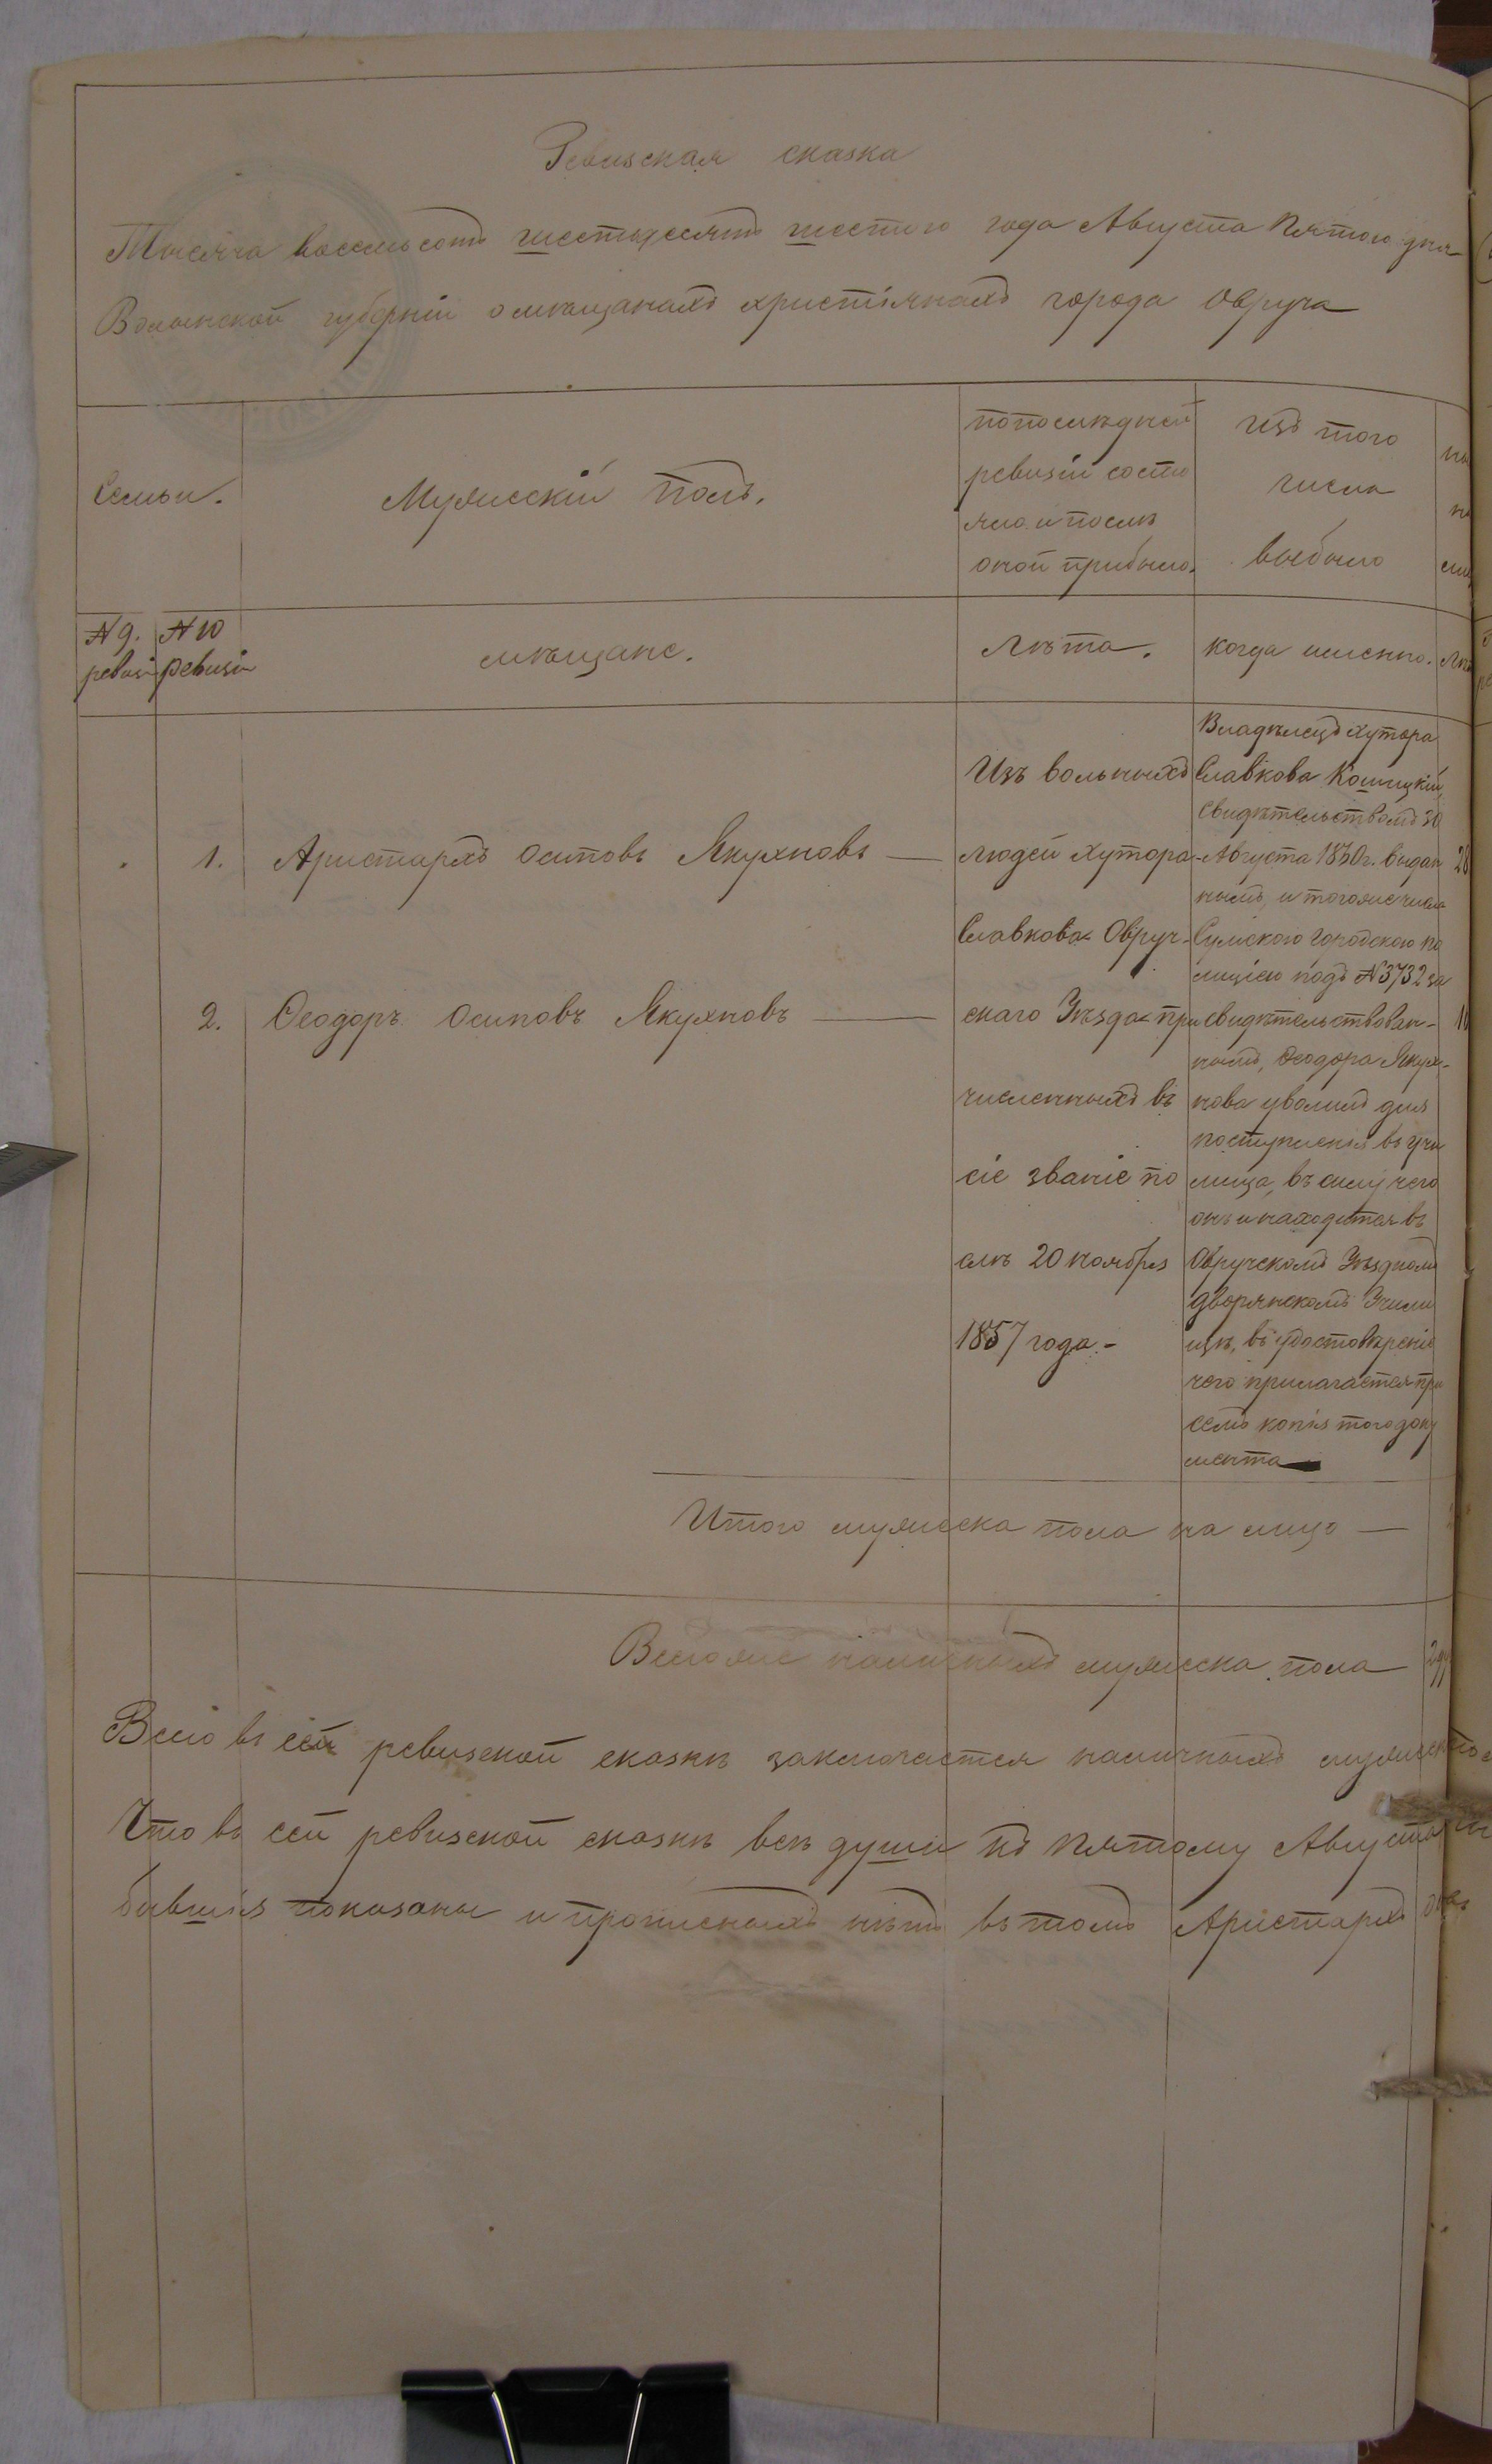 Ревизская сказка
Тысяча восемьсотъ шестьдесятъ шестого года Августа Пятого дня
Волынской губерніи о мѣщанахъ христіянахъ города Овруча
Семьи.
Мужескій полъ.
попослѣдней
ревизіи состо
яло и послѣ
оной прибыло.
изъ того
числа
выбыло
№ 9.
ревизи
№ 10
ревизи
мѣщане.
Лѣта.
когда именно.
1. Аристархъ Осиповъ Якухновъ —
2. Ѳеодоръ Осиповъ Якухновъ —
Изъ вольныхъ
людей хутора
Славкова Овруч-
скаго Уѣзда при
численныхъ въ
сіе званіе по
слѣ 20 ноября
1857 года.-
Владѣлецъ хутора
Славкова Кошицкій,
свидѣтельствомъ 30
Августа 1850 г. выдан
нымъ, и тогоже числа
городскою по
лиціею подъ № 3732 за
свидѣтельствован-
нымъ, Ѳеодора Якух-
нова уволилъ для
поступленія въ учи
лища, въ силу чего
онъ и находится въ
Овручскомъ Уѣздномъ
дворянскомъ Учили
щѣ, въ удостовѣреніе
чего прилагается при
семъ копія того доку
мента
28
Итого мужеска пола на лицо —
Всегоже наличныхъ мужеска пола
Всего въ сей ревизской сказкѣ заключается наличныхъ
Что въ сей ревизской сказкѣ всѣ души по Пятому Августа
бывшія показаны и прописныхъ нѣтъ въ томъ Аристархъ